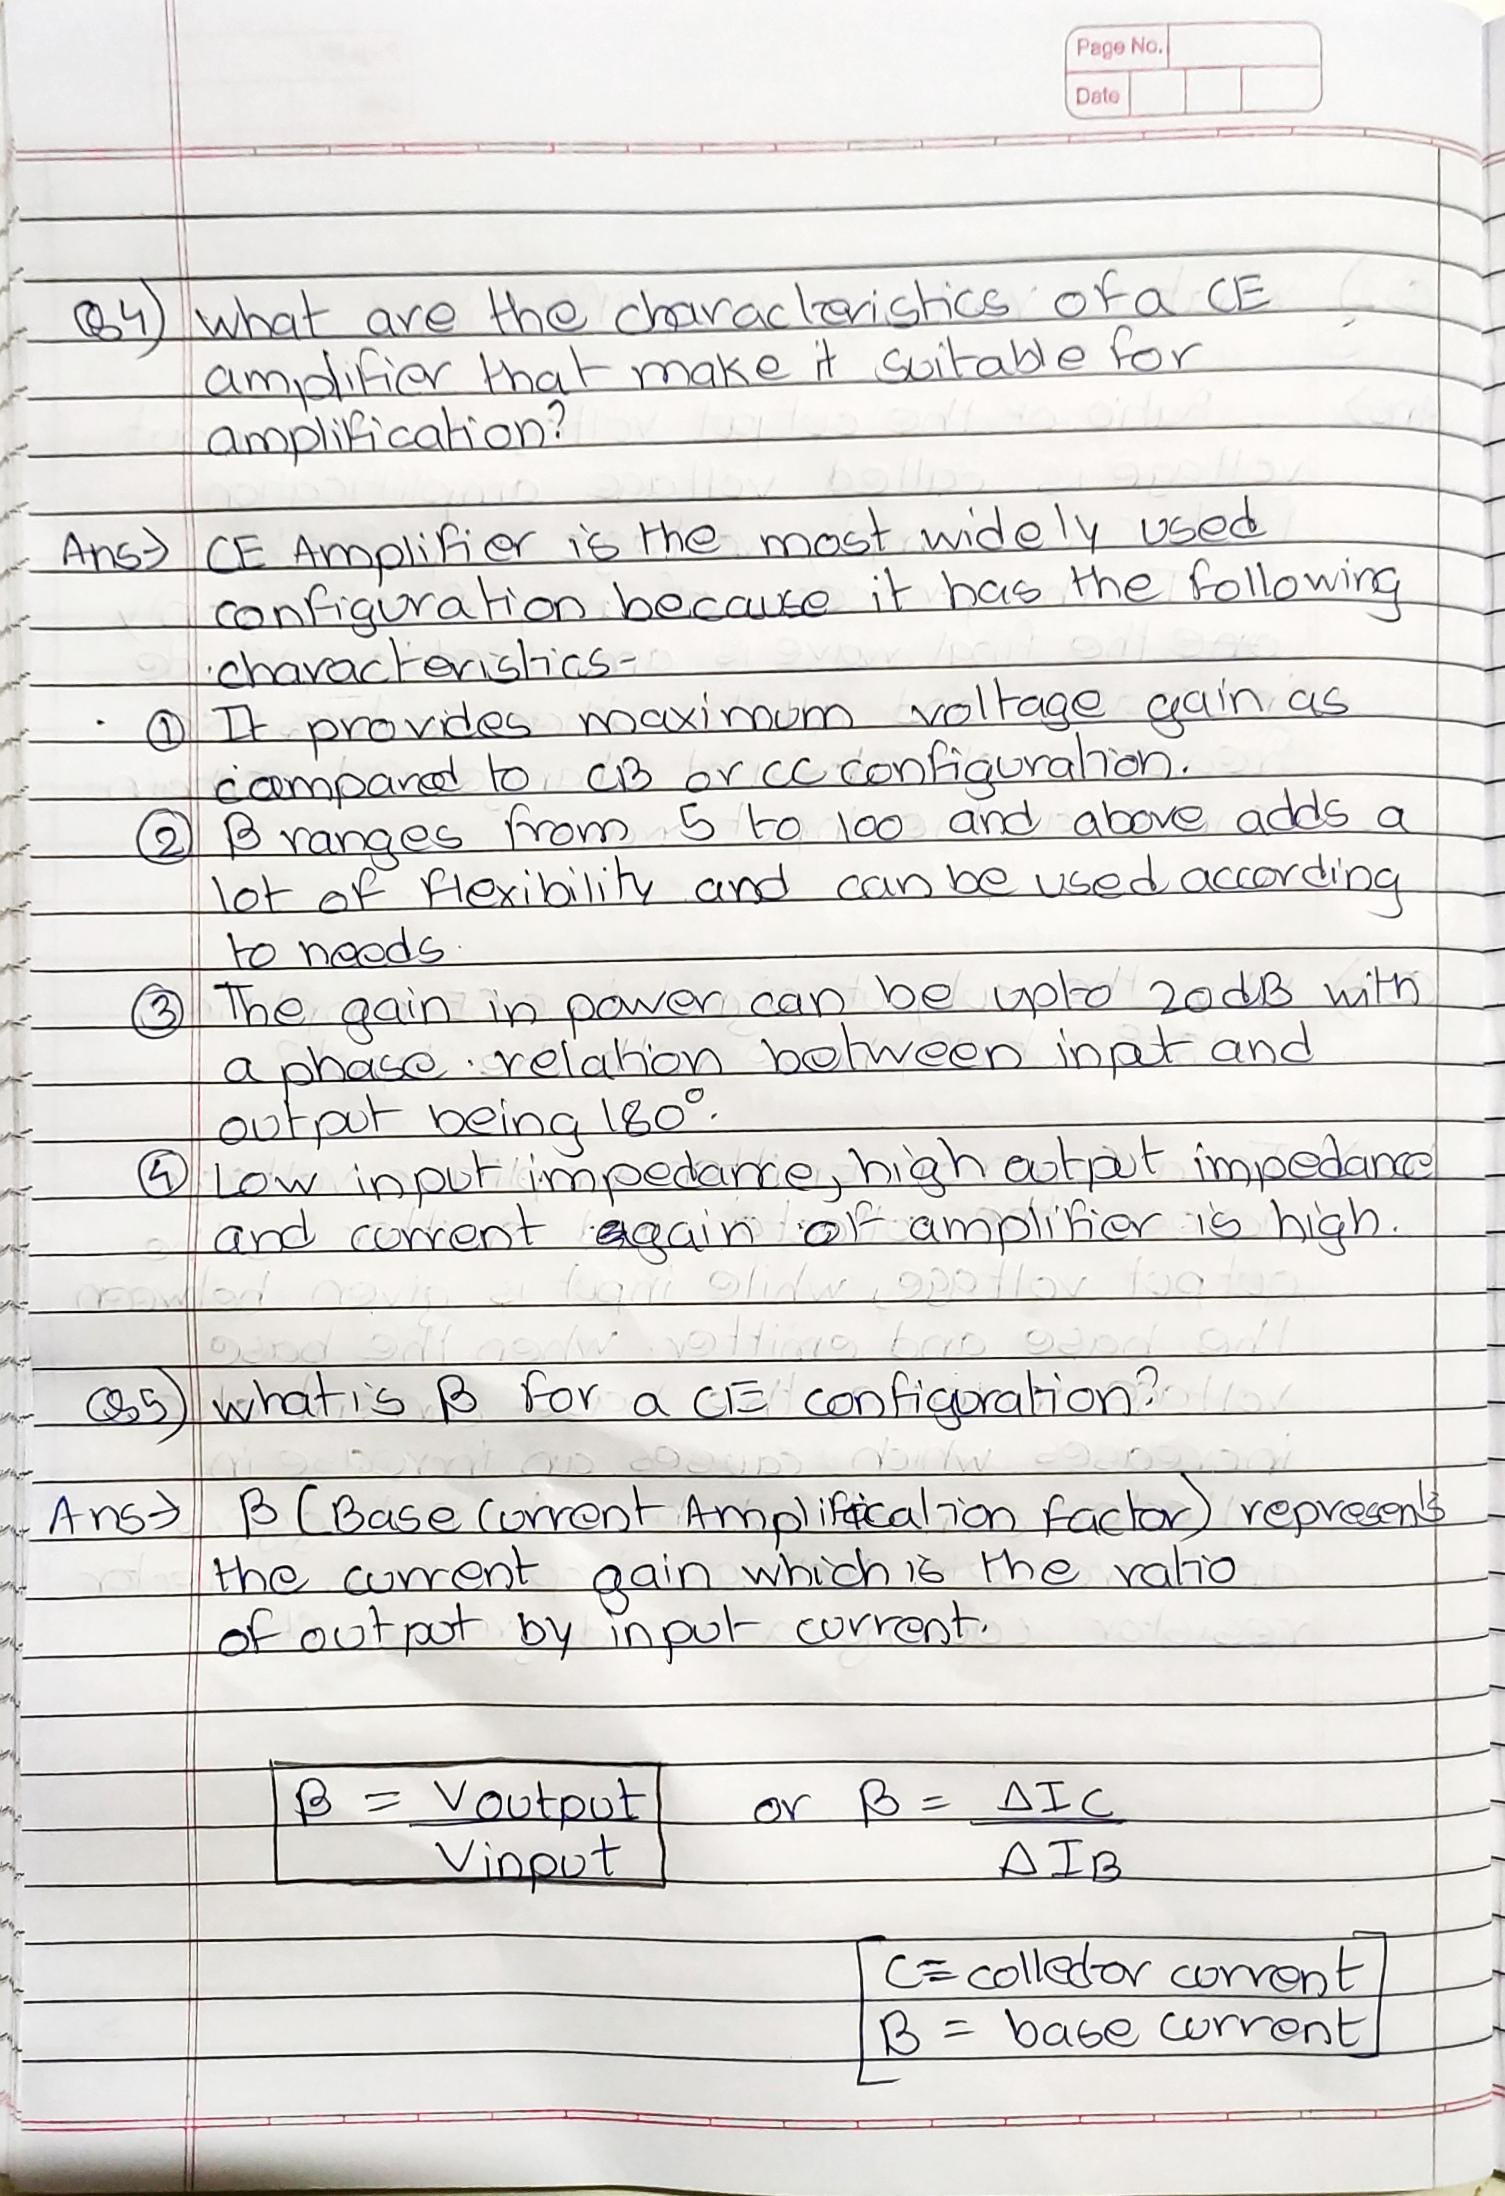 Page No.
Date
Q4) What are the characteristics of a CE
amplifier that make it suitable for
amplification?
Ans→ CE Amplifier is the most widely used
configuration because it has the following
characteristics-
① It provides maximum voltage gain as
compared to CB or CC configuration.
② β ranges from 5 to 100 and above adds a
lot of flexibility and can be used according
to needs.
③ The gain in power can be upto 20dB with
a phase relation between inpt and
output being 180°.
④ Low input impedance, high output impedance
and current gain of amplifier is high.
Q5) What is β for a CE configuration?
Ans→ β (Base Current Amplification factor) represents
the current gain which is the ratio
of output by input current.
β = Voutput or β = ΔIC
Vinput ΔIB
C = collector current
B = base current